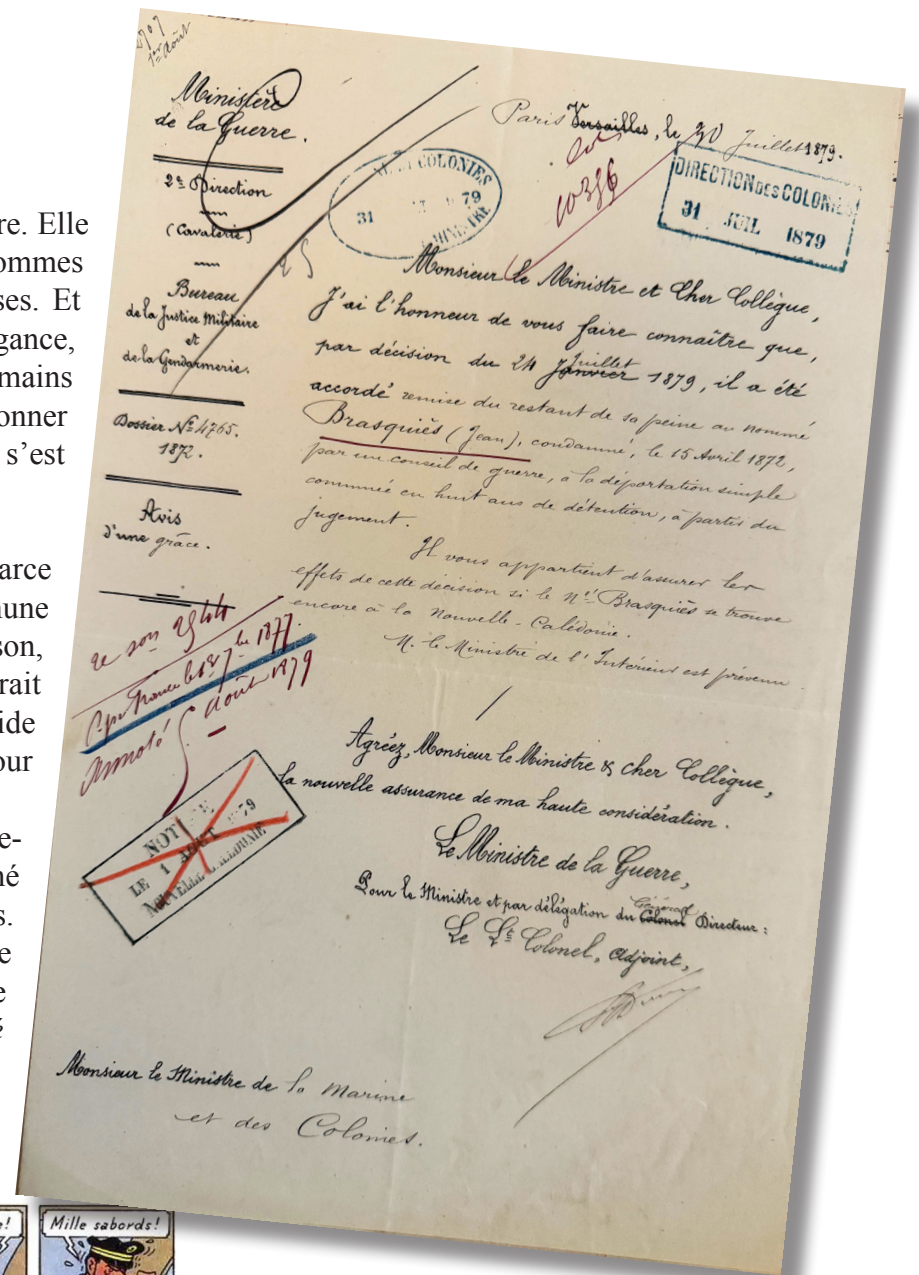 re. Elle
ommes
ses. Et
gance,
mains
onner
s’est
arce
nune
son,
rait
ide
our
e-
né
s.
e
e
é
1er Août
Ministère
de la Guerre.
2e Direction
(Cavalerie)
Bureau
de la Justice Militaire
et
de la Gendarmerie.
Dossier No 4765.
1872.
Avis
d'une grâce.
Paris Versailles, le 30 Juillet 1879.
10386
COLONIES
31 79
MINISTRE
DIRECTION DES COLONIES
31 JUIL 1879
25
Monsieur le Ministre et Cher Collègue,
J'ai l'honneur de vous faire connaître que,
par décision du 24 janvier Juillet 1879, il a été
accordé remise du restant de sa peine au nommé
Brasquiès (Jean), condamné, le 15 Avril 1872,
par un conseil de guerre, à la déportation simple
commuée en huit ans de détention, à partir du
jugement.
Il vous appartient d'assurer les
effets de cette décision si le Né Brasquiès se trouve
encore à la Nouvelle-Calédonie.
M. le Ministre de l'Intérieur est prévenu.
2544
France le 1877
Annoté 5 Août 1879
NOTIFIÉ
LE 1 AOUT 1879
NOUVELLE CALÉDONIE
Agréez, Monsieur le Ministre & cher Collègue,
la nouvelle assurance de ma haute considération.
Le Ministre de la Guerre,
Pour le Ministre et par délégation du Colonel Général Directeur:
Le Lt Colonel, adjoint,
Monsieur le Ministre de la Marine
et des Colonies.
e!
Mille sabords!